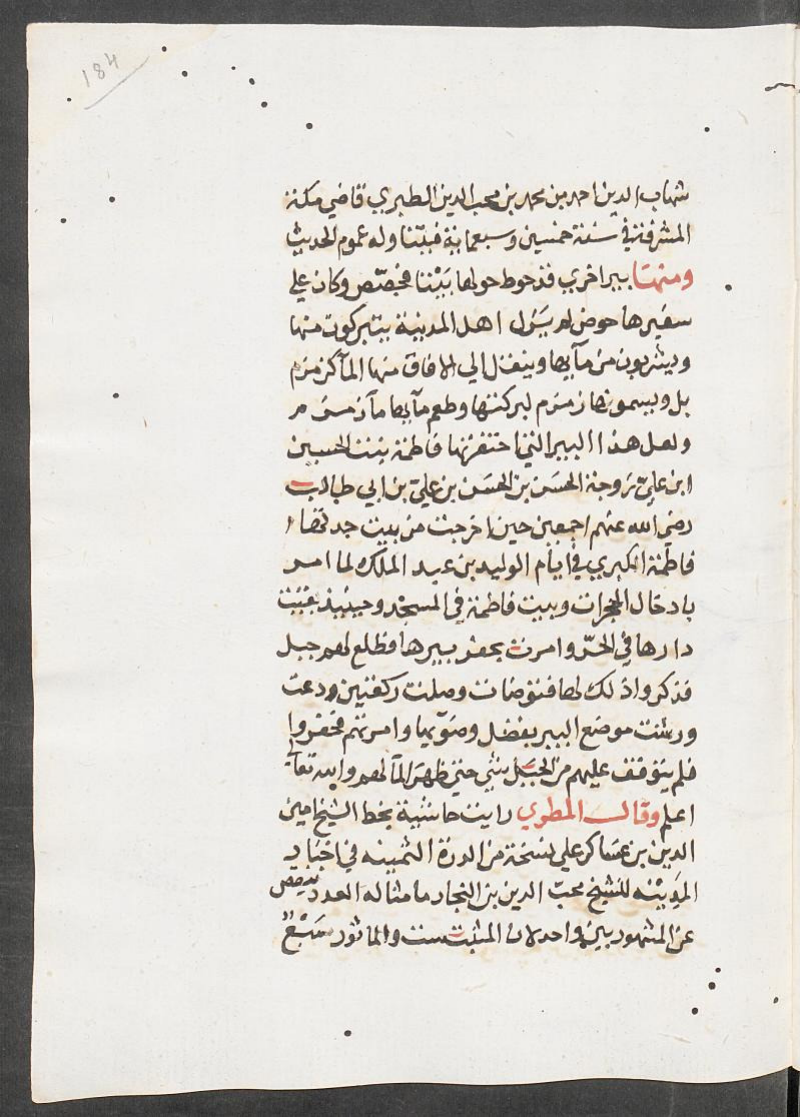 184
شهاب الدين احمد بن محمد بن محب الدين الطبري قاضي مكة
المشرفة في سنة خمسين وسبعماية فبيتنا وله عموم الحديث
ومنها بير اخري قد حوط حولها بينا مخصص وكان علي
سفيرها حوض لم يزل اهل المدينة يتبركون منها
ويشربون من مآيها وينقل الي الافاق منها المآ كزمزم
بل ويسمونها زمزم لبركتها وطعم مآيها مآ زمزم
ولعل هذا البير التي احتفرتها فاطمة بنت الحسين
ابن علي زوجة الحسن بن الحسن بن علي بن ابي طالب
رضي الله عنهم اجمعين حين اخرجت من بيت جدتها
فاطمة الكبري في ايام الوليد بن عبد الملك لما امر
بادخال الحجرات وبيت فاطمة في المسجد وحينيذ بنت
دارها في الحرّ وامرت بحفر بيرها فطلع لهم جبل
فذكروا ذلك لها فتوضات وصلت ركعتين ودعت
ورشت موضع البير بفضل وضوّيها وامرتهم فحفروا
فلم يتوقف عليهم من الجبل شي حتي ظهر المآ لهم والله تعالي
اعلم وقال المطري رايت حاشية بخط الشيخ امين
الدين بن عساكر علي نسخة من الدرة الثمينه في اخبار
المدينه للشيخ محبّ الدين بن النجار ما مثاله العدد ينقص
عن المشهور بير واحد لان المثبت ست والماثور سَبْعٌ